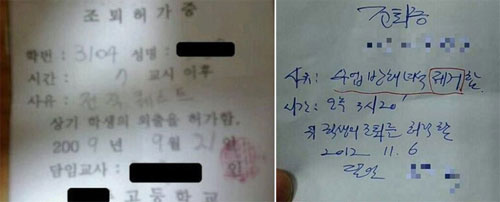 조퇴허가증
학번 : 3104 성명 :
시간 : 7 교시 이후
사유 : 전국 체스트
상기 학생의 외출을 허가함.
2009 년 9월 21일
담임교사 : 인
고등학교
조퇴증
사유: 수업 방해 녀석 제거함
시간: 오후 3시 20
위 학생의 조퇴를 허락함
2012 11. 6
담임